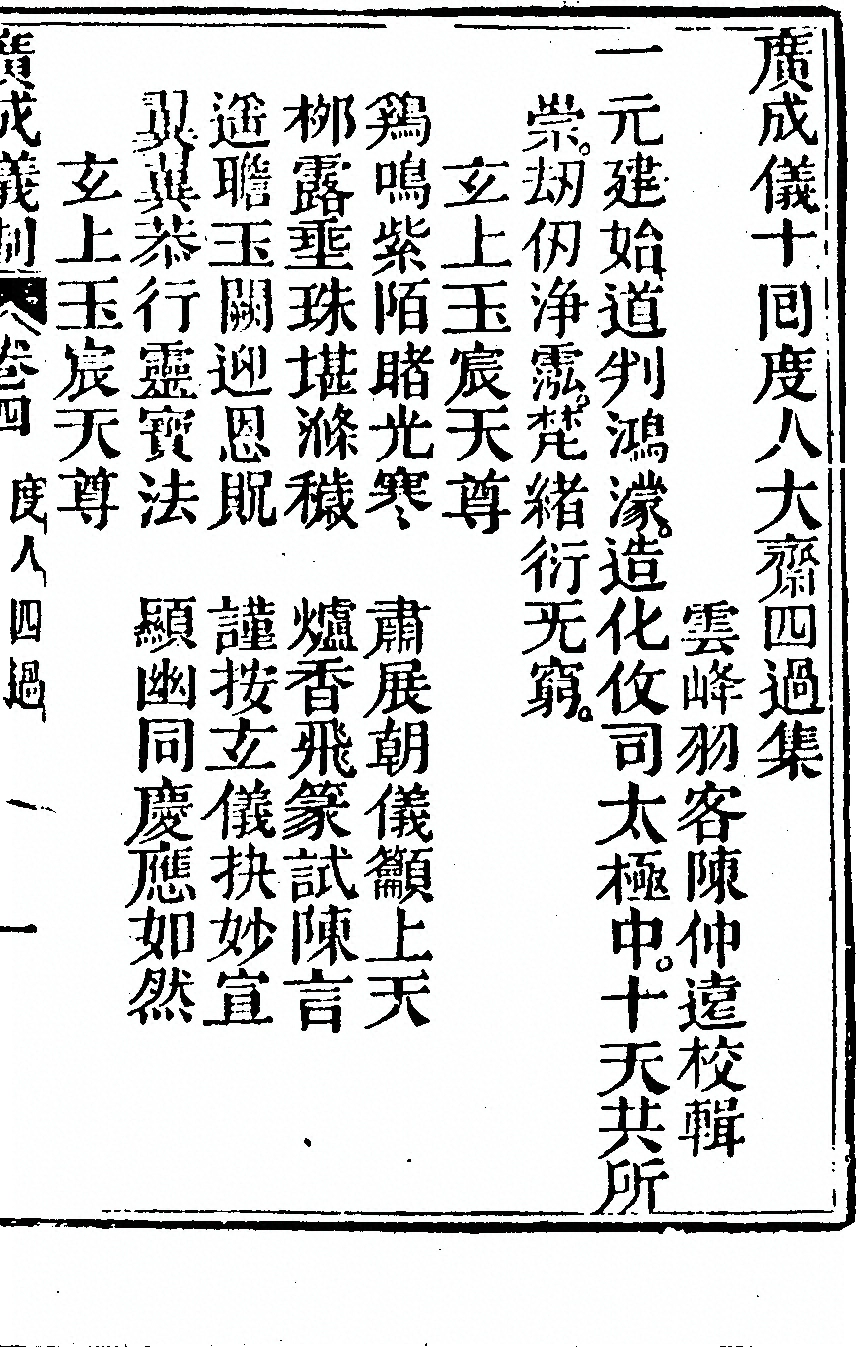 廣成儀十回度人大齋四過集
雲峰羽客陳仲遠校輯
一元建始道判鴻濛。造化攸司太極中。十天共所
崇。刧仞浄霐。梵緒衍旡窮。
玄上玉宸天尊
鷄鳴紫陌睹光寒　肅展朝儀籲上天
栁露垂珠堪滌穢　爐香飛篆試陳言
遥瞻玉闕迎恩貺　謹按玄儀抉妙宣
翼翼恭行靈寶法　顯幽同慶應如然
玄上玉宸天尊
廣成儀制 卷四 度人四過 一